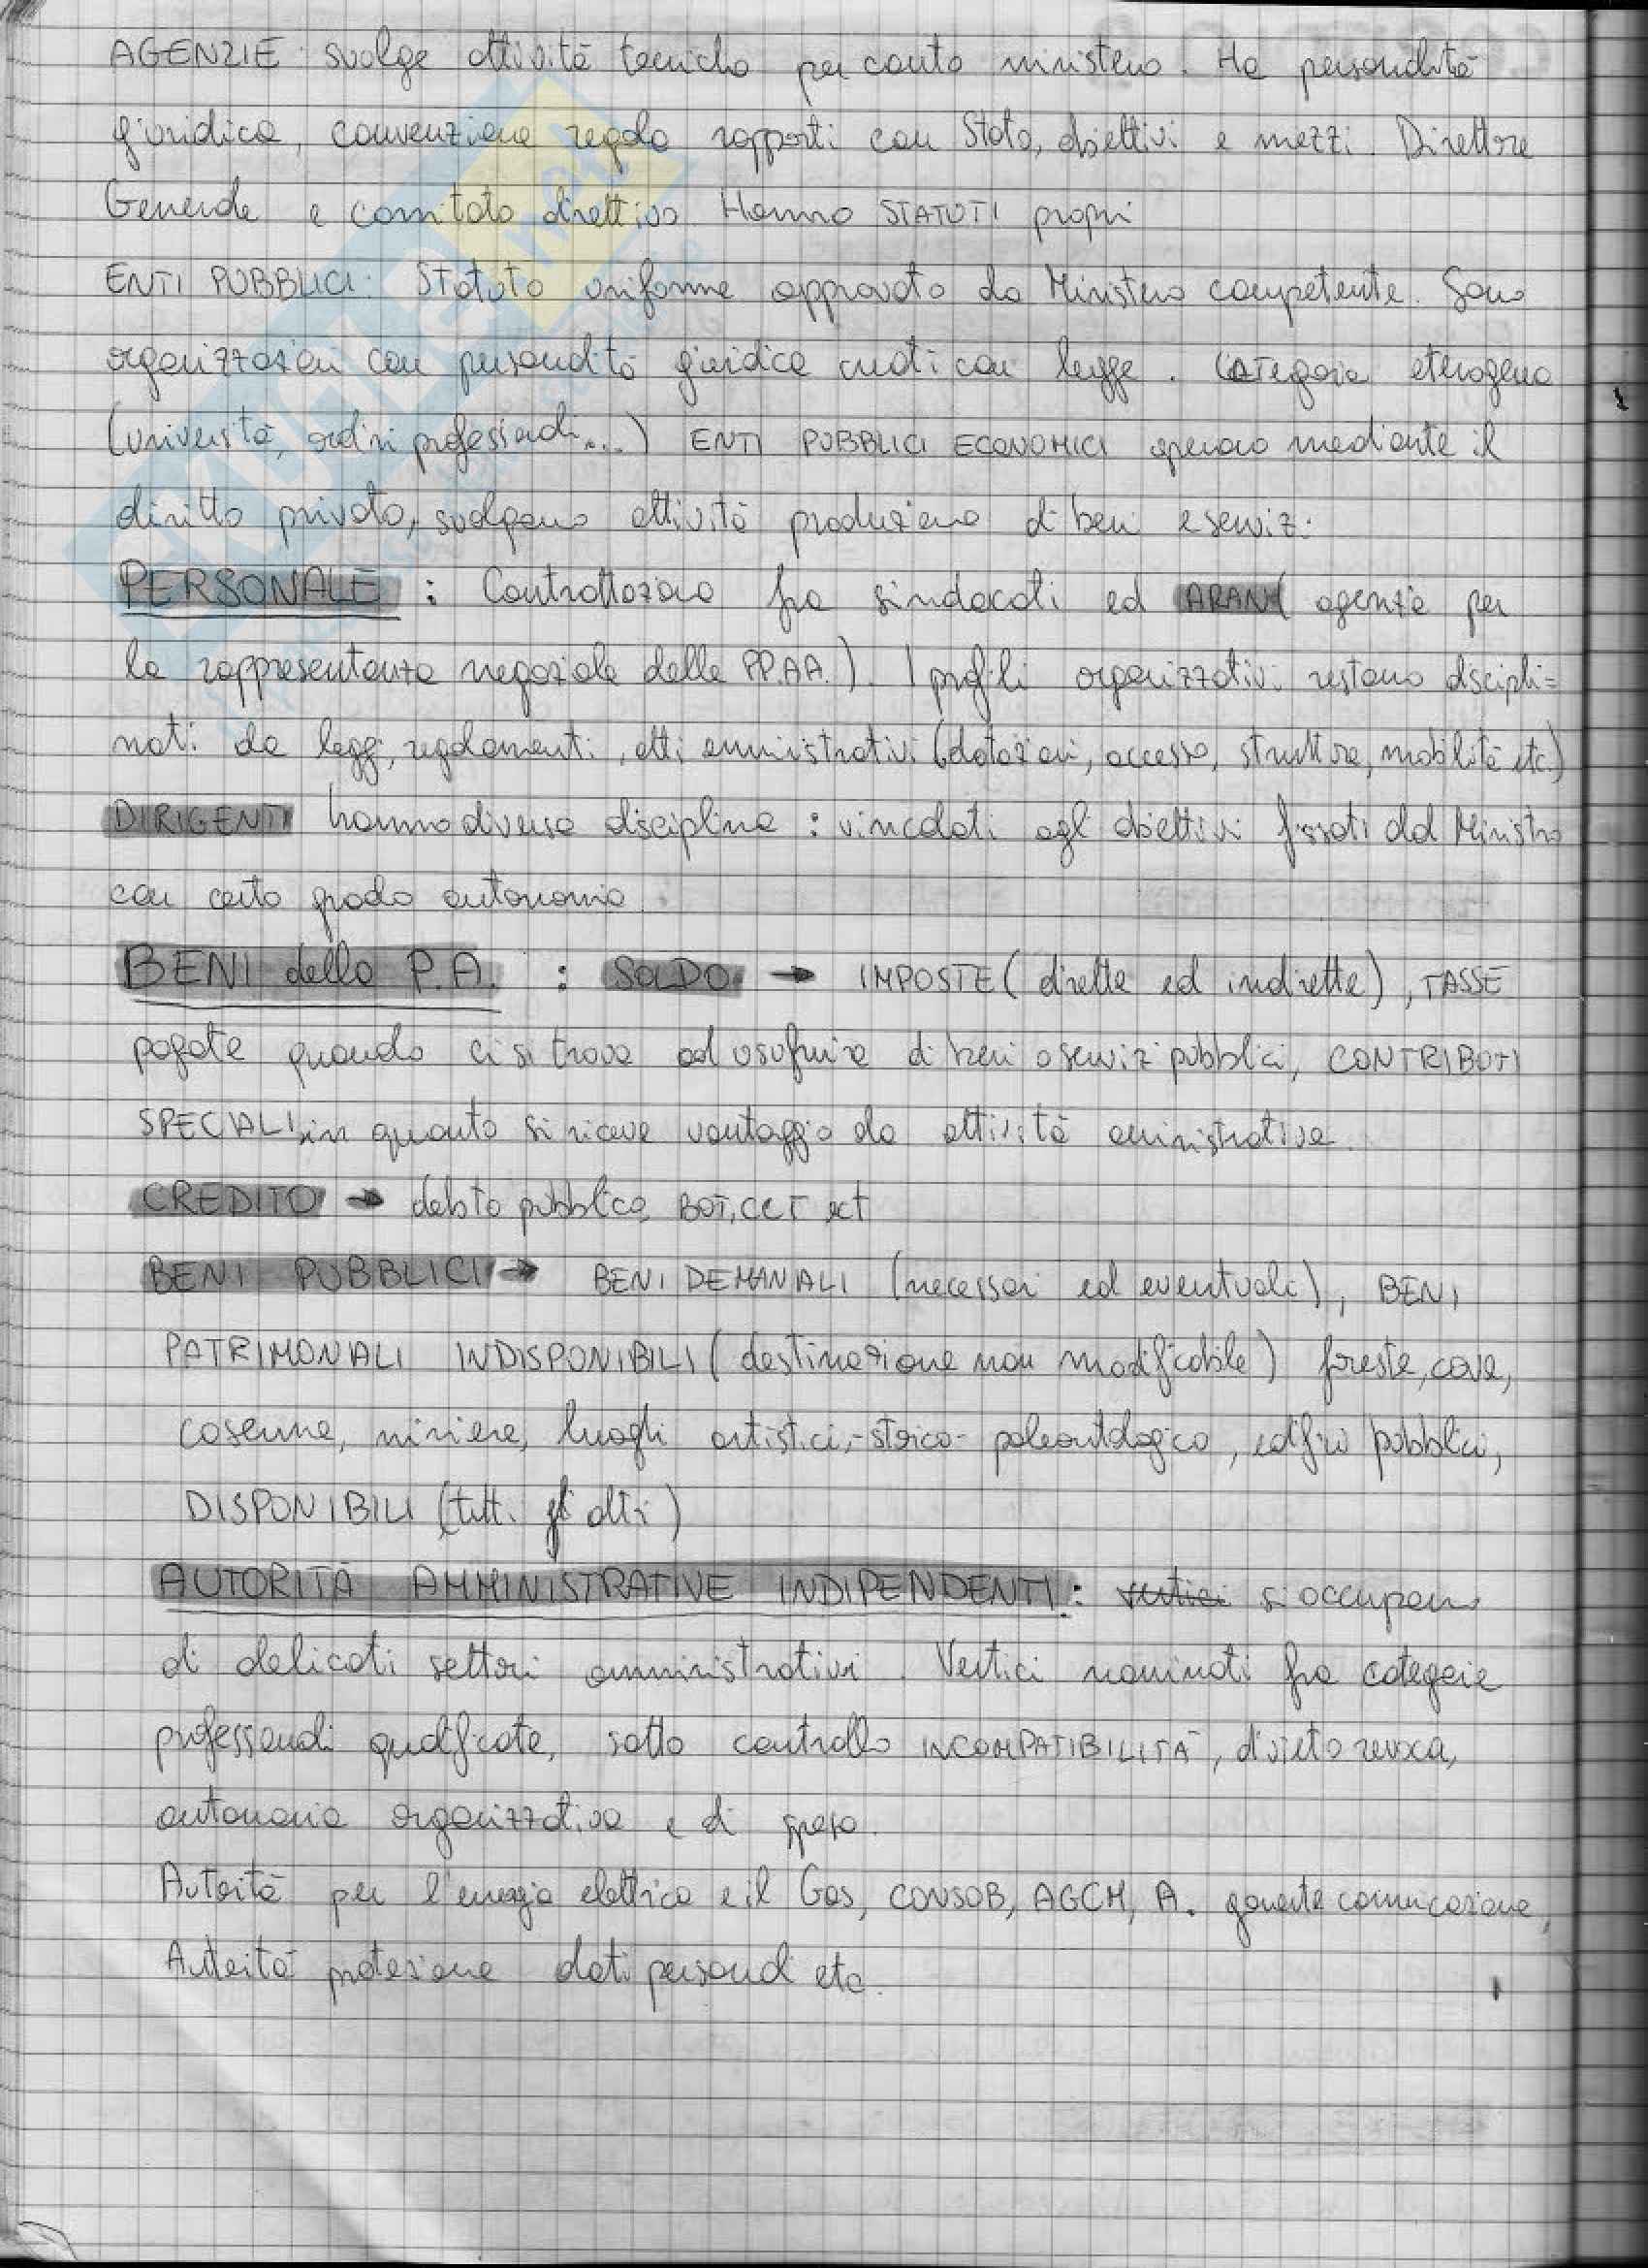 AGENZIE: svolge attività tecniche per conto ministero. Ha personalità
giuridica, convenzione regola rapporti con Stato, obiettivi e mezzi. Direttore
Generale e comitato direttivo. Hanno STATUTI propri
ENTI PUBBLICI: Statuto uniforme approvato da Ministero competente. Sono
organizzazioni con personalità giuridica creati con legge. Categoria eterogenea
(università, ordini professionali...) ENTI PUBBLICI ECONOMICI operano mediante il
diritto privato, svolgono attività produzione di beni e servizi
PERSONALE: Contrattazione fra sindacati ed ARAN (agenzia per
la rappresentanza negoziale delle PP.AA.). I profili organizzativi restano discipli=
nati da leggi, regolamenti, atti amministrativi (dotazioni, accesso, struttura, mobilità etc.)
DIRIGENTI hanno diversa disciplina: vincolati agli obiettivi fissati dal Ministro
con certo grado autonomia.
BENI della P.A.: SOLDO → IMPOSTE (dirette ed indirette), TASSE
pagate quando ci si trova ad usufruire di beni o servizi pubblici, CONTRIBUTI
SPECIALI, in quanto si riceve vantaggio da attività amministrativa.
CREDITO → debito pubblico, BOT, CCT ect
BENI PUBBLICI → BENI DEMANIALI (necessari ed eventuali), BENI
PATRIMONALI INDISPONIBILI (destinazione non modificabile) foreste, cave,
caserme, miniere, luoghi artistici,-storico-paleontologico, edifici pubblici,
DISPONIBILI (tutti gli altri)
AUTORITÀ AMMINISTRATIVE INDIPENDENTI: vertici si occupano
di delicati settori amministrativi. Vertici nominati fra categorie
professionali qualificate, sotto controllo INCOMPATIBILITÀ, divieto revoca,
autonomia organizzativa e di spesa.
Autorità per l'energia elettrica e il Gas, CONSOB, AGCM, A. garante comunicazione,
Autorità protezione dati personali etc.